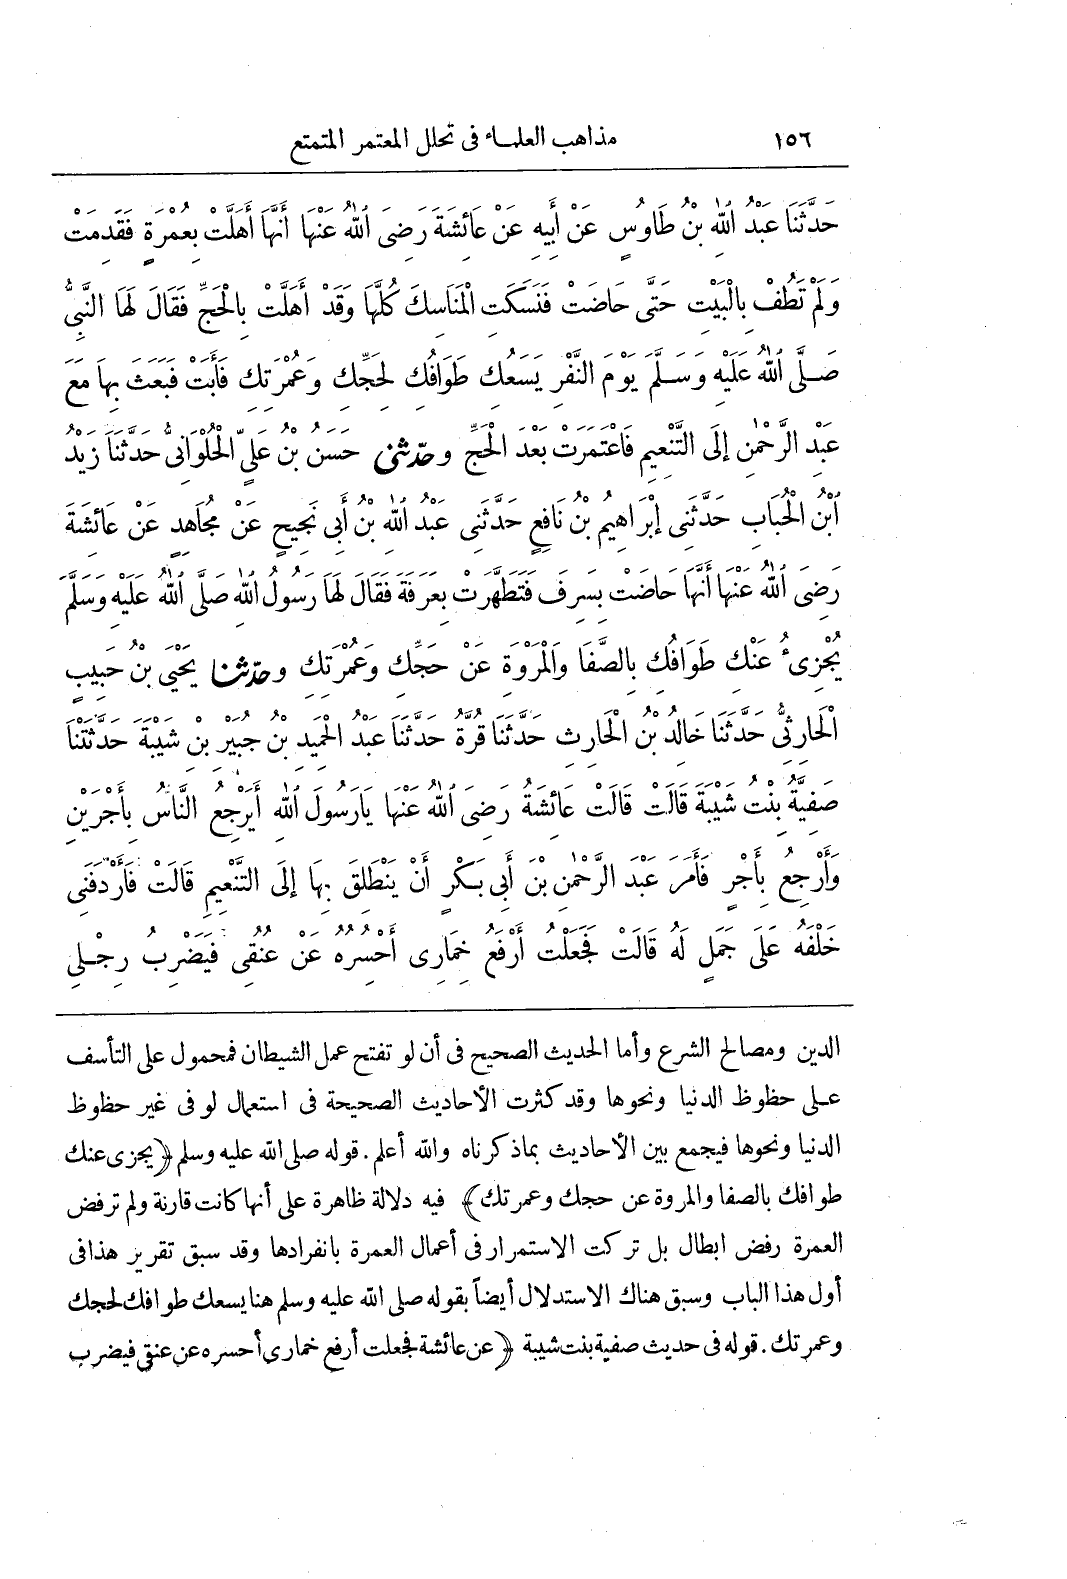 ١٥٦ مذاهب العلماء فى تحلل المعتمر المتمتع
حَدَّثَنَا عَبْدُ اللهِ بْنُ طَاوُسٍ عَنْ أَبِيهِ عَنْ عَائِشَةَ رَضِىَ اللهُ عَنْهَا أَنَّهَا أَهَلَّتْ بِعُمْرَةٍ فَقَدِمَتْ
وَلَمْ تَطُفْ بِالْبَيْتِ حَتَّى حَاضَتْ فَنَسَكَتِ الْمَنَاسِكَ كُلَّهَا وَقَدْ أَهَلَّتْ بِالْحَجِّ فَقَالَ لَهَا النَّبِىُّ
صَلَّى اللهُ عَلَيْهِ وَسَلَّمَ يَوْمَ النَّفْرِ يَسَعُكِ طَوَافُكِ لِحَجِّكِ وَعُمْرَتِكِ فَأَبَتْ فَبَعَثَ بِهَا مَعَ
عَبْدِ الرَّحْمٰنِ إِلَى التَّنْعِيمِ فَاعْتَمَرَتْ بَعْدَ الْحَجِّ وحدّثنى حَسَنُ بْنُ عَلِىٍّ الْحُلْوَانِىُّ حَدَّثَنَا زَيْدُ
ابْنُ الْحُبَابِ حَدَّثَنِى إِبْرَاهِيمُ بْنُ نَافِعٍ حَدَّثَنِى عَبْدُ اللهِ بْنُ أَبِى نَجِيحٍ عَنْ مُجَاهِدٍ عَنْ عَائِشَةَ
رَضِىَ اللهُ عَنْهَا أَنَّهَا حَاضَتْ بِسَرِفَ فَتَطَهَّرَتْ بِعَرَفَةَ فَقَالَ لَهَا رَسُولُ اللهِ صَلَّى اللهُ عَلَيْهِ وَسَلَّمَ
يُجْزِىءُ عَنْكِ طَوَافُكِ بِالصَّفَا وَالْمَرْوَةِ عَنْ حَجِّكِ وَعُمْرَتِكِ وحدّثنا يَحْيَى بْنُ حَبِيبٍ
الْحَارِثِىُّ حَدَّثَنَا خَالِدُ بْنُ الْحَارِثِ حَدَّثَنَا قُرَّةُ حَدَّثَنَا عَبْدُ الْحَمِيدِ بْنُ جُبَيْرِ بْنِ شَيْبَةَ حَدَّثَتْنَا
صَفِيَّةُ بِنْتُ شَيْبَةَ قَالَتْ قَالَتْ عَائِشَةُ رَضِىَ اللهُ عَنْهَا يَارَسُولَ اللهِ أَيَرْجِعُ النَّاسُ بِأَجْرَيْنِ
وَأَرْجِعُ بِأَجْرٍ فَأَمَرَ عَبْدَ الرَّحْمٰنِ بْنَ أَبِى بَكْرٍ أَنْ يَنْطَلِقَ بِهَا إِلَى التَّنْعِيمِ قَالَتْ فَأَرْدَفَنِى
خَلْفَهُ عَلَى جَمَلٍ لَهُ قَالَتْ فَجَعَلْتُ أَرْفَعُ خِمَارِى أَحْسُرُهُ عَنْ عُنُقِى فَيَضْرِبُ رِجْلِى
الدين ومصالح الشرع وأما الحديث الصحيح فى أن لو تفتح عمل الشيطان فمحمول على التأسف
على حظوظ الدنيا ونحوها وقد كثرت الأحاديث الصحيحة فى استعمال لو فى غير حظوظ
الدنيا ونحوها فيجمع بين الأحاديث بماذكرناه والله أعلم. قوله صلى الله عليه وسلم ﴿يجزى عنك
طوافك بالصفا والمروة عن حجك وعمرتك﴾ فيه دلالة ظاهرة على أنها كانت قارنة ولم ترفض
العمرة رفض ابطال بل تركت الاستمرار فى أعمال العمرة بانفرادها وقد سبق تقرير هذا فى
أول هذا الباب وسبق هناك الاستدلال أيضاً بقوله صلى الله عليه وسلم هنا يسعك طوافك لحجك
وعمرتك. قوله فى حديث صفية بنت شيبة ﴿عن عائشة فجعلت أرفع خمارى أحسره عن عنقى فيضرب